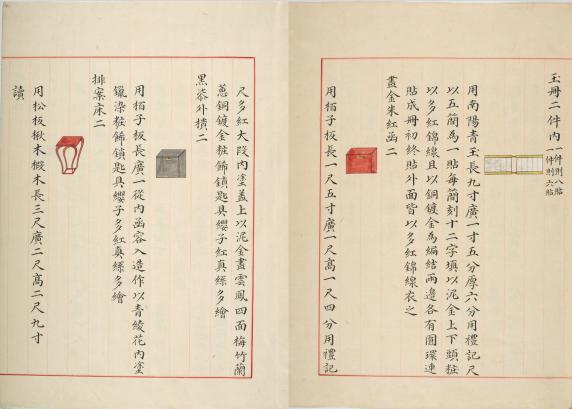 玉冊二件內 一件則八貼 一件則六貼
用南陽青玉長九寸廣一寸五分厚六分用禮記尺
以五簡為一貼每簡刻十二字填以泥金上下頭粧
以多紅錦線且以銅鍍金為編結兩邊各有圓環連
貼成冊初終貼外面皆以多紅錦線衣之
畫金朱紅函二
用栢子板長一尺五寸廣一尺高一尺四分用禮記
尺多紅大段內塗蓋上以泥金畫雲鳳四面梅竹蘭
蕙銅鍍金粧飾鎖匙具纓子紅真絲多繪
黑柒外樻二
用栢子板長廣一從內函容入造作以青綾花內塗
鑞染粧飾鎖匙具纓子多紅真絲多繪
排案床二
用松板楸木椴木長三尺廣二尺高二尺九寸
讀